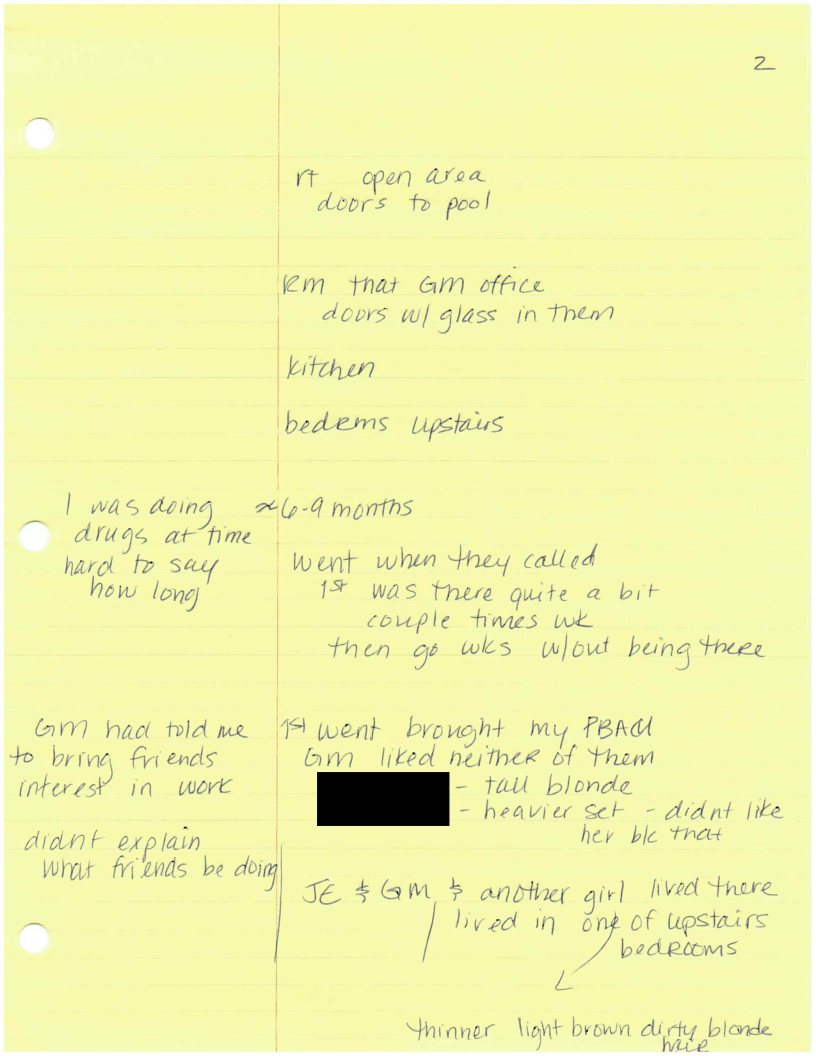 2
rt open area
doors to pool
Rm that GM office
doors w/ glass in them
kitchen
bedrms upstairs
I was doing
drugs at time
hard to say
how long
≈6-9 months
went when they called
1st was there quite a bit
couple times wk
then go wks w/out being there
GM had told me
to bring friends
interest in work
didnt explain
what friends be doing
1st went brought my PBACU
GM liked neither of them
- tall blonde
- heavier set - didnt like
her b/c that
JE & GM & another girl lived there
lived in one of upstairs
bedrooms
thinner light brown dirty blonde
hair